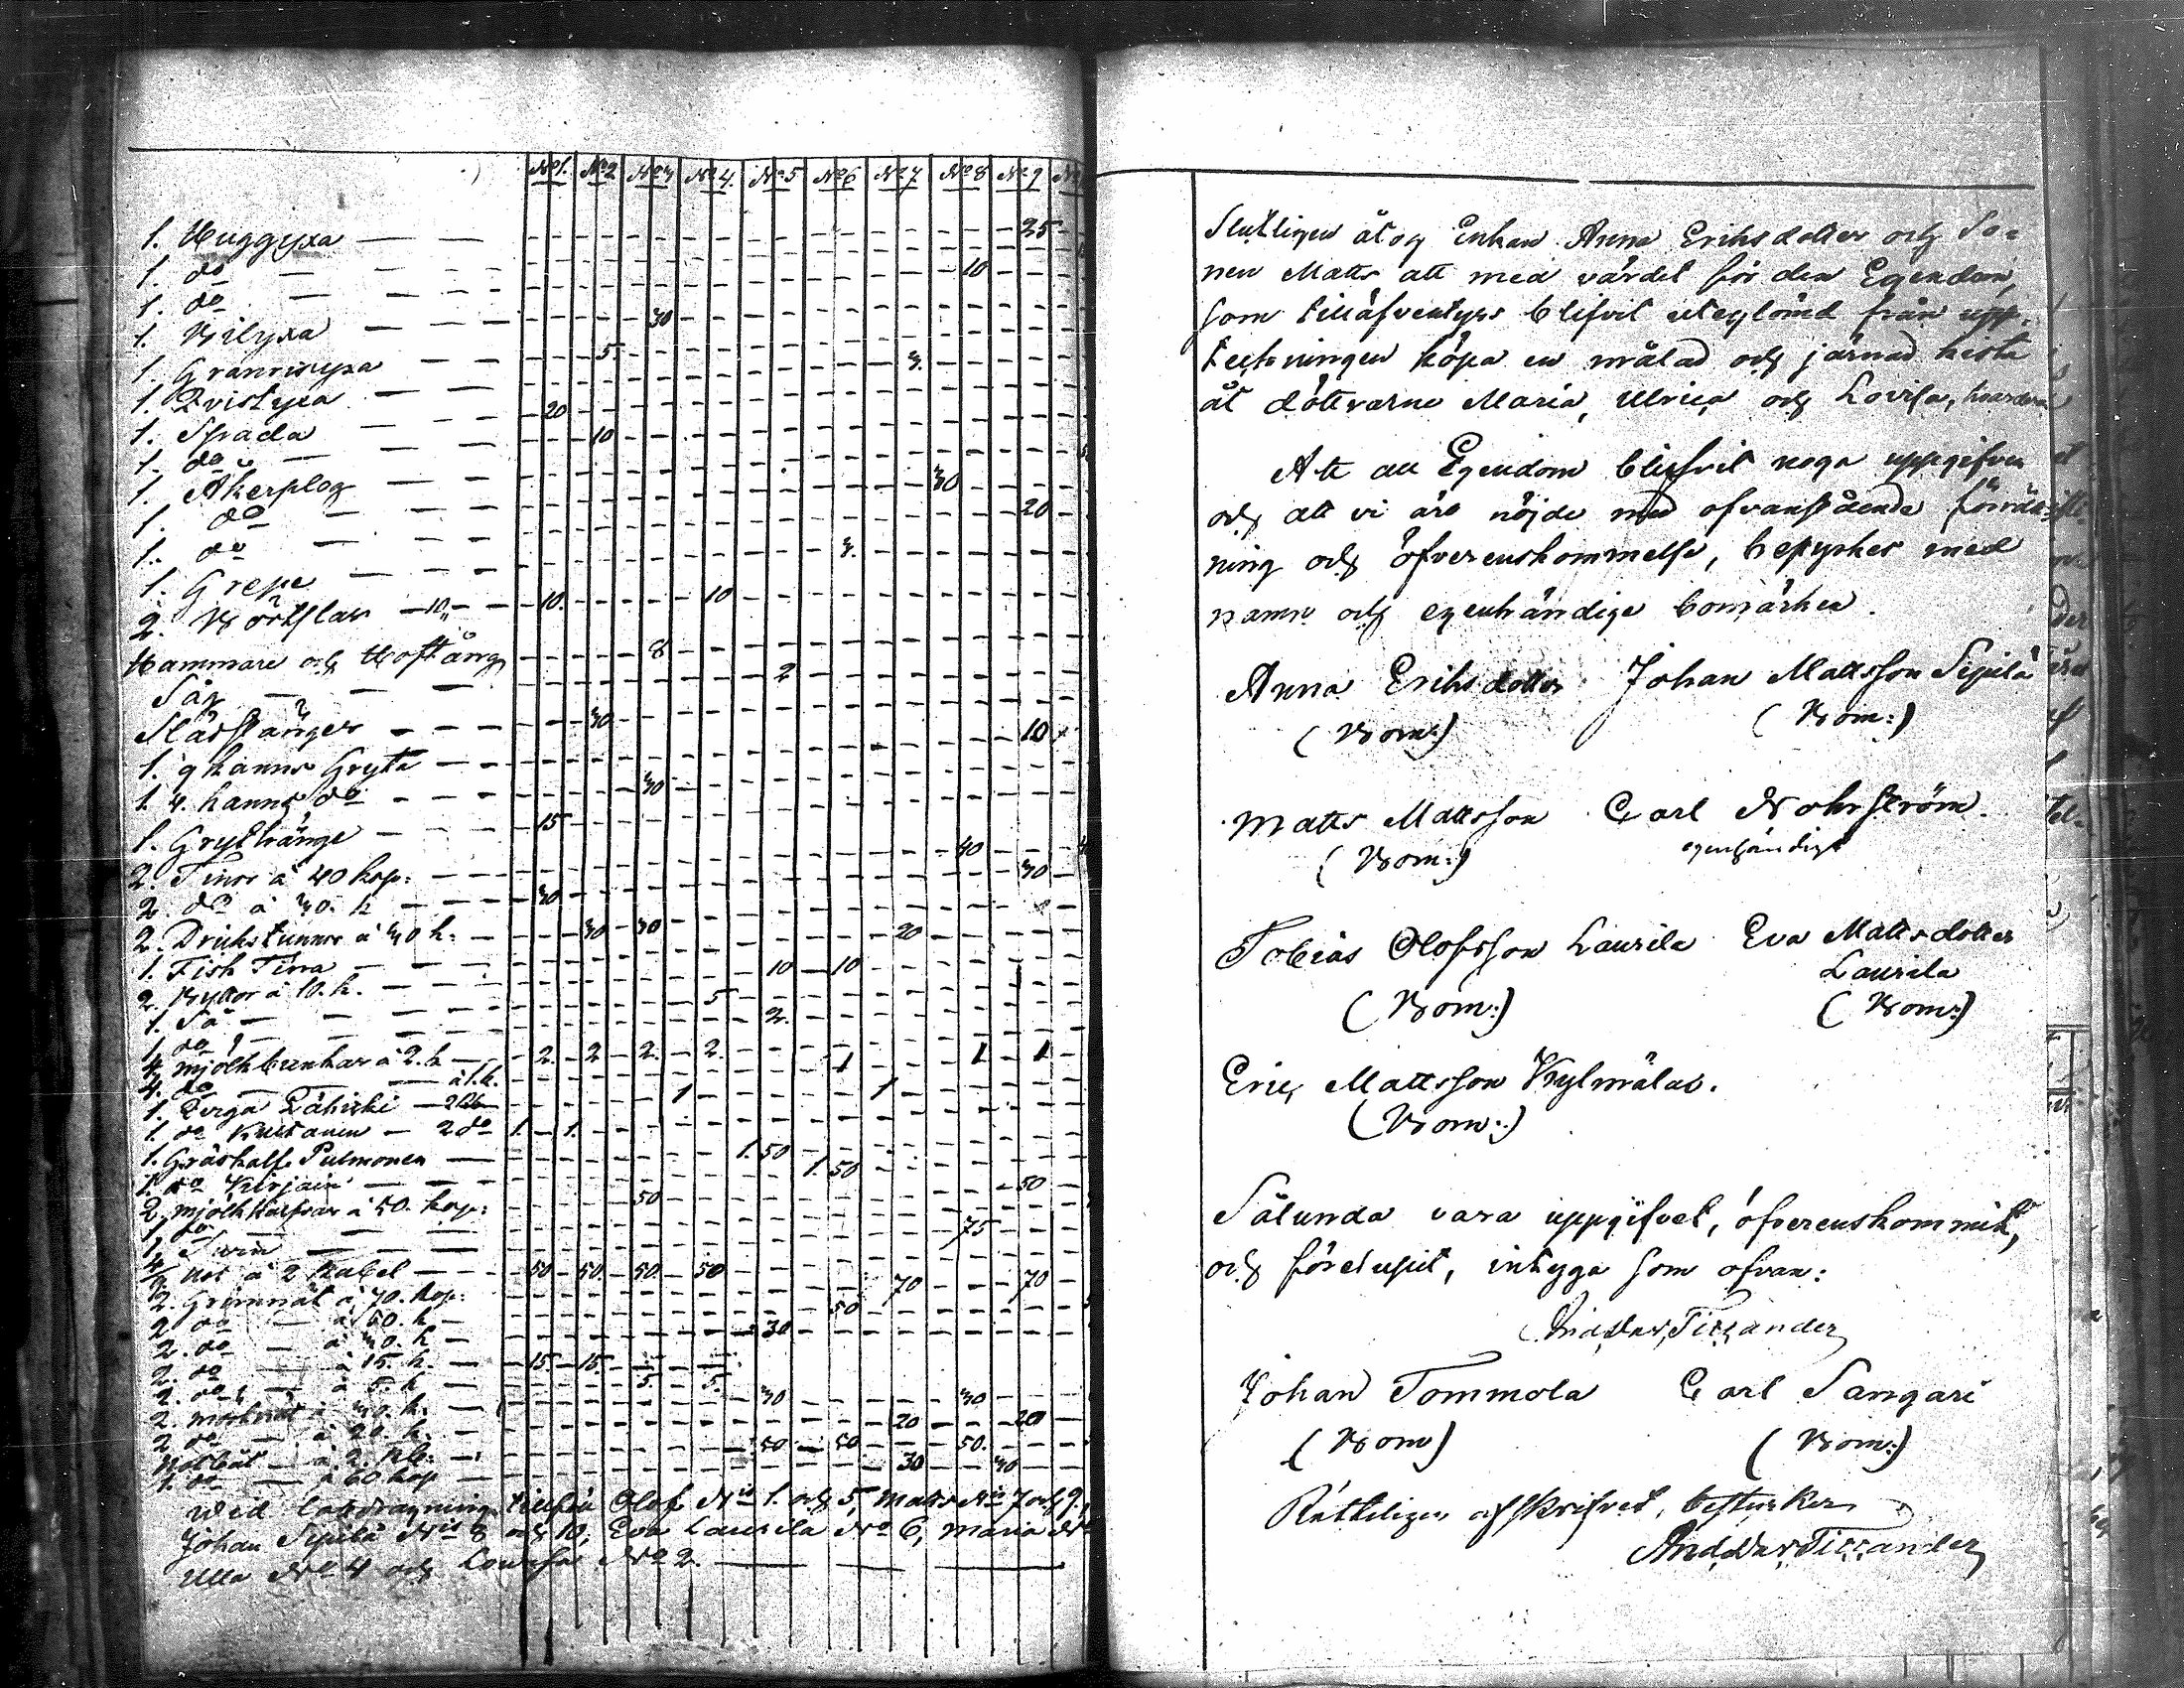 No1. No2 No3 No4. No5 No6 No7 No8 No9
1. Huggyxa — — 25
1. do — 10
1. do — —
1. Bilyxa — — 30
1. Granrisyxa — 5 3.
1. Qvistyxa —
1. Spada — 20
1. do — 10
1. Åkerplog — —
1. do — 30
1. do — — 20
1. Grepe — 3.
2. — 10 — 10. 10
Hammare och Hoftång 8
Såg — — 2
Slädstänger — — 30
1. 9 kanns Gryta — — 10
1. 4. kanns do — — 30
1. Grythänge — — 15
2. Tinor à 40 kop: — 40
2. do à 30. k — 30 30
2. Drickstunnor à 30 k. — 30 30 20
1. Fisk Tina — — 10 10
2. Byttor à 10. k. — 5
1. Så — — 2
1. do —
4. mjölkbunkar à 2. k — 2. 2 2. 2.
4. do — à 1. k. 1 1 1 1 1
1. 2 Rb
1. do — 2 do 1. 1.
1. Gräskalf. Pulmonen — 1. 50
1. do Kirjain — 1. 50
2. mjölk à 50. kop: 50 50
1. do — — 75
1. — —
4/4 Not à 2 Rubel — 50 50. 50. 50
2. Grimnät à 70. kop: 70 70
2. do — à 50. k — 50
2. do — à 30. k — 30
2. do — à 15. k. — 15. 15.
2. do — à 5. k — 5. 5.
2. à 30. k. — 30 30
2. do — à 20. k. — 20 20
Notbåt — à 2. Rb: — 50 50 50.
1. do — à 60 kop — 30 30
Wid lottdragning tillföll Olof No 1. och 5, Matts No 7 och 9,
Johan Sipilä No 8 och 10, Eva Laurila No 6, Maria No
Ulla No 4 och Lowisa No 2.
Slutligen åtog Enkan Anna Eriksdotter och So-
nen Matts att med värdet för den Egendom,
som tilläfventyrs blifvit uteglömd från upp-
teckningen köpa en målad och järnad kista
åt döttrarne Maria, Ulrica och Lovisa, hvardera
Att all Egendom blifvit noga uppgifven
och att vi äro nöjde med ofvanstående
ning och öfverenskommelse, betyrkes med
namn och egenhändige bomärken.
Anna Eriksdotter Johan Mattsson Sipilä
(Bom:) (Bom:)
Matts Mattsson Carl Nohrström.
(Bom:) egenhändigt
Tobias Olofsson Laurila Eva Mattsdotter
Laurila
(Bom:) (Bom:)
Eric Mattsson Kylmälas.
(Bom:)
Sålunda vara uppgifvet, öfverenskommit,
och förelupit, intyga som ofvan:
And. Joh. Tickander
Johan Tommola Carl Sangari
(Bom) (Bom:)
Rätteligen afskrifvet, bestyrker